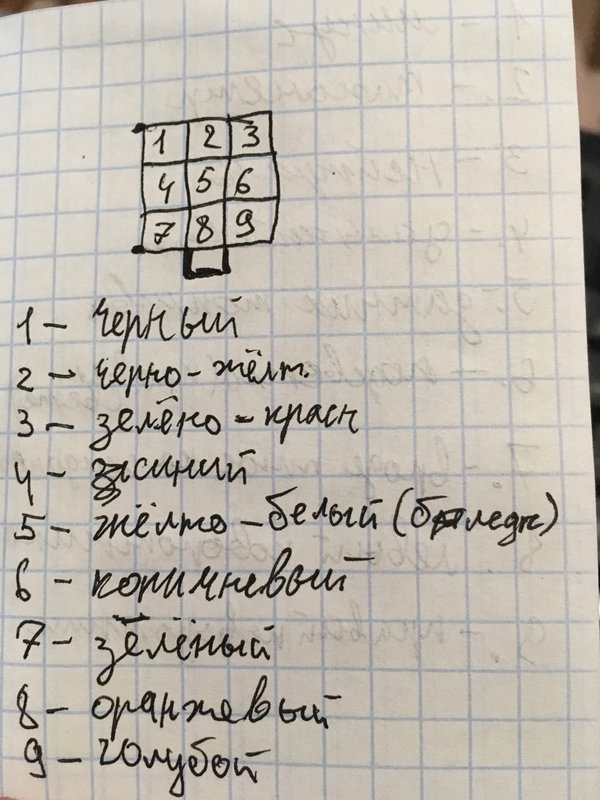 1 2 3
4 5 6
7 8 9
1 – черный
2 – черно-жёлт.
3 – зелёно-красн
4 – синий
5 – жёлто-белый (бледн)
6 – коричневый
7 – зелёный
8 – оранжевый
9 – голубой